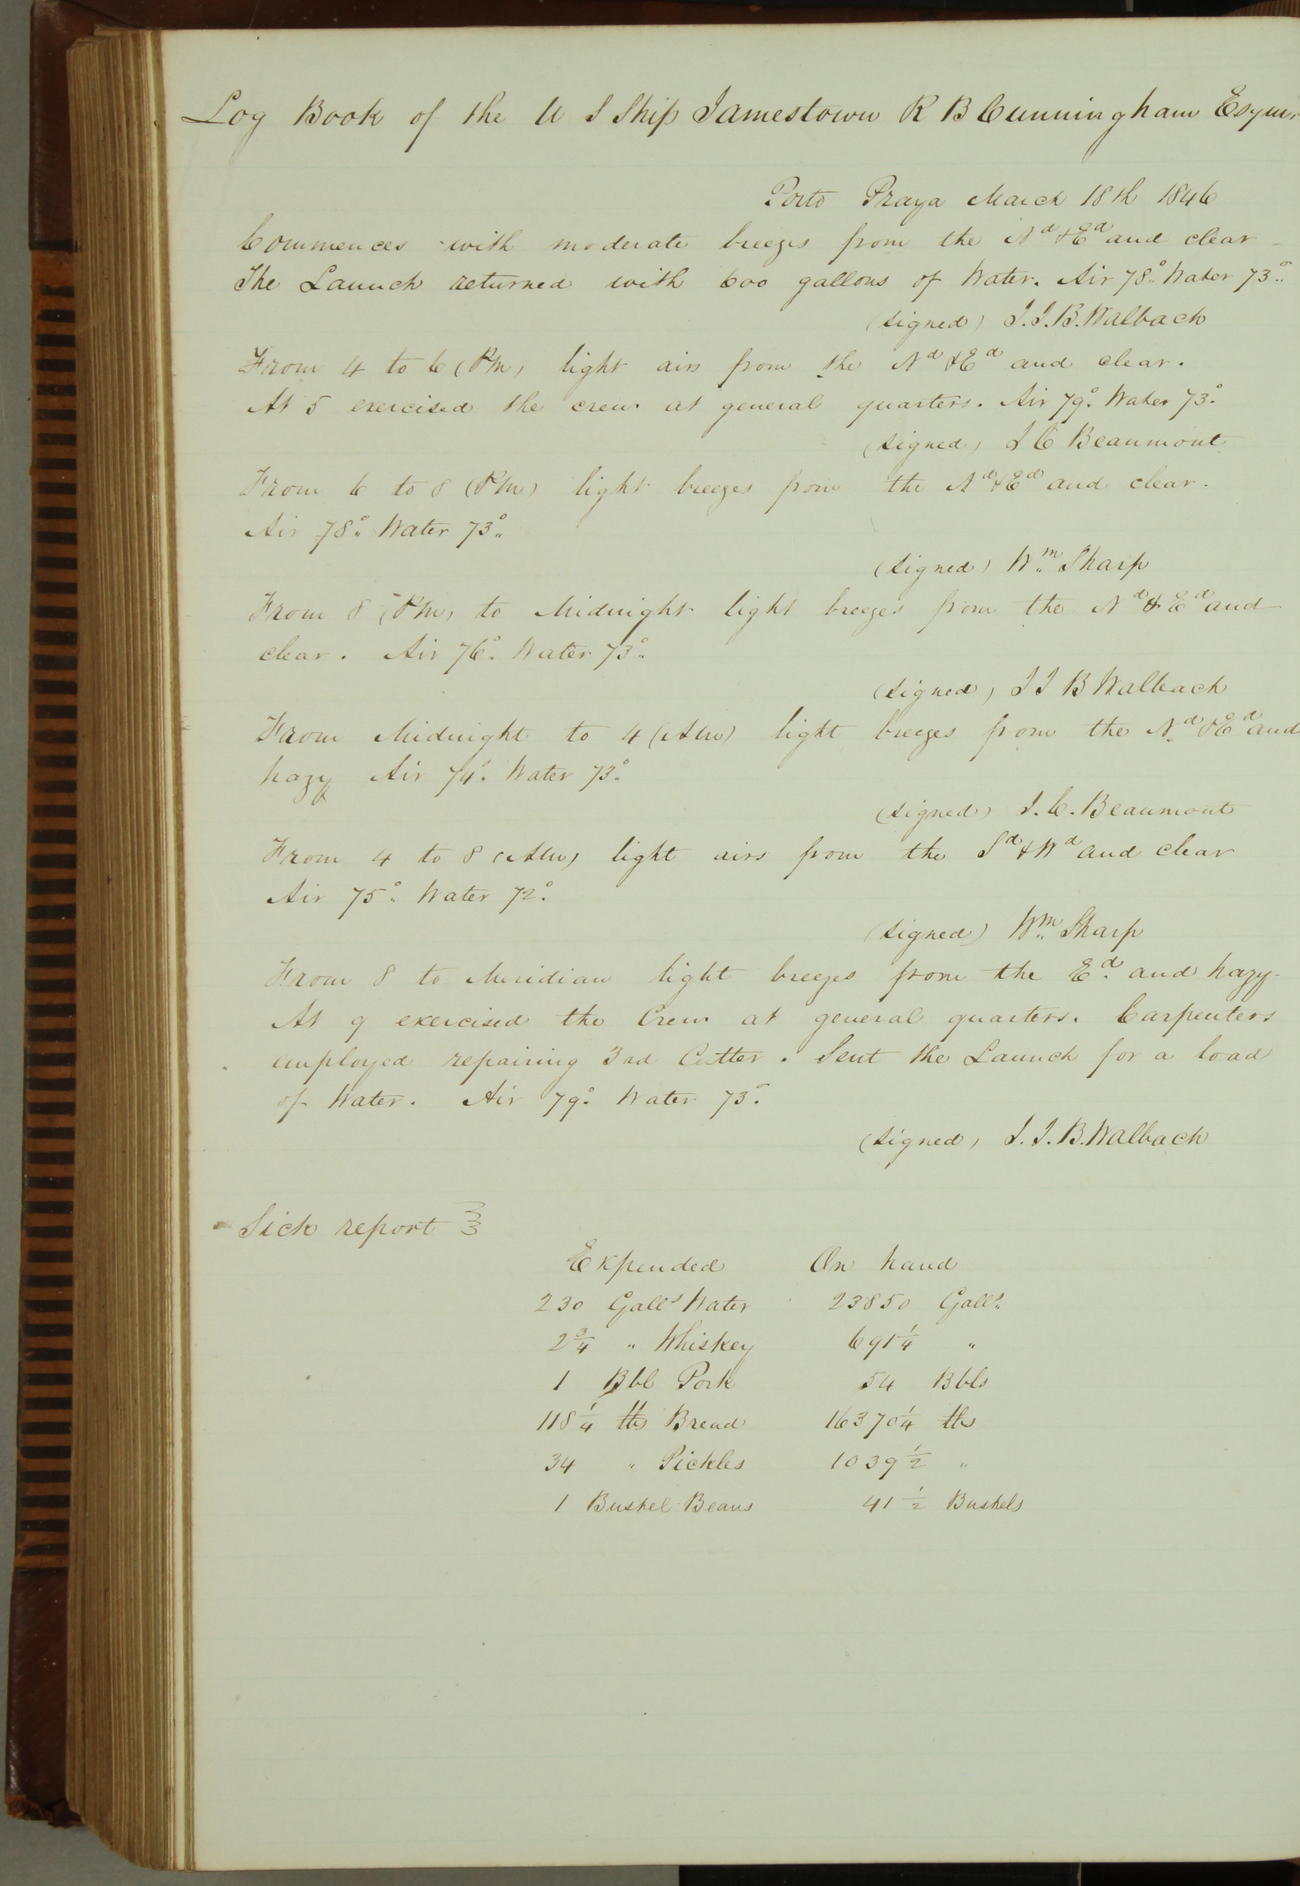 Log Book of the U S Ship Jamestown R B Cunningham Esqur
Porto Praya March 18th 1846
Commences with moderate breezes from the Nd & Ed and clear
The Launch returned with 600 gallons of Water. Air 78° Water 73°
(signed) J. J. B. Walbach
From 4 to 6 (PM) light airs from the Nd & Ed and clear.
At 5 exercised the crew at general quarters. Air 79° Water 73°
(signed) J C Beaumont
From 6 to 8 (PM) light breezes from the Nd & Ed and clear.
Air 78° Water 73°
(signed) Wm Sharp
From 8 (PM) to Midnight light breezes from the Nd & Ed and
clear. Air 76° Water 73°
(signed) J J B Walbach
From Midnight to 4 (AM) light breezes from the Nd & Ed and
hazy Air 74° Water 73°
(signed) J. C. Beaumont
From 4 to 8 (AM) light airs from the Sd & Wd and clear
Air 75° Water 72°
(signed) Wm Sharp
From 8 to Meridian light breezes from the Ed and hazy
At 9 exercised the Crew at general quarters. Carpenters
employed repairing 3rd Cutter. Sent the Launch for a load
of Water. Air 79° Water 73°
(signed) J. J. B. Walbach
Sick report 33
Expended On hand
230 Galls Water 23850 Galls
2 3/4 " Whiskey 691 1/4 "
1 Bbl Pork 54 Bbls
118 1/4 lbs Bread 16370 1/4 lbs
34 " Pickles 1039 1/2 "
1 Bushel Beans 41 1/2 Bushels